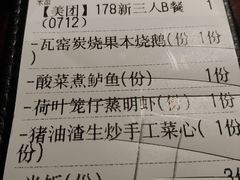 【美团】178新三人B餐 1
(0712)
-瓦窑炭烧果本烧鹅(份 1份
)
-酸菜煮鲈鱼(份) 1份
-荷叶笼仔蒸明虾(份) 1份
-猪油渣生炒手工菜心( 1份
份)